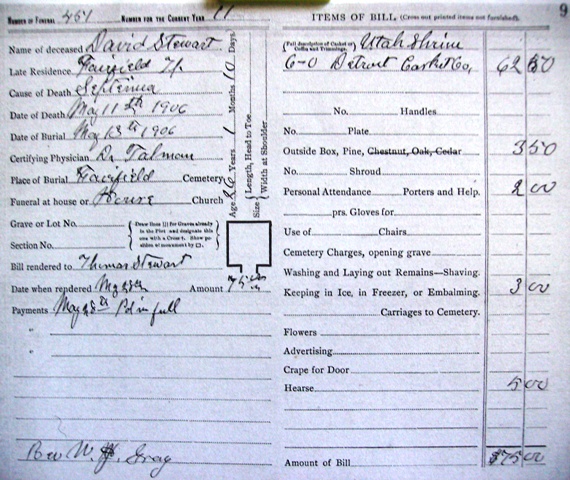 NUMBER OF FUNERAL 457 NUMBER FOR THE CURRENT YEAR 11
Name of deceased David Stewart
Late Residence Fairfield Tp.
Cause of Death
Date of Death May 11th 1906
Date of Burial May 13th 1906
Certifying Physician Dr Talmon
Place of Burial Fairfield Cemetery
Funeral at house or House Church
Grave or Lot No.
Section No.
Bill rendered to Thomas Stewart
Date when rendered Amount 75.00
Payments May Pd in full
"
"
Rev W. Gray
Age Years 1 Months 10 Days.
Size Length, Head to Toe.
Width at Shoulder
9
ITEMS OF BILL (Cross out printed items not furnished).
(Full description of Casket or Coffin and Trimmings.) Utah Shrine
6-0 Detroit Casket Co, 62 50
No. Handles
No. Plate
Outside Box, Pine, Chestnut, Oak, Cedar 3 50
No. Shroud
Personal Attendance Porters and Help. 2 00
prs. Gloves for
Use of Chairs.
Cemetery Charges, opening grave
Washing and Laying out Remains—Shaving.
Keeping in Ice, in Freezer, or Embalming. 3 00
Carriages to Cemetery.
Flowers
Advertising.
Crape for Door
Hearse 5 00
Amount of Bill $75.00